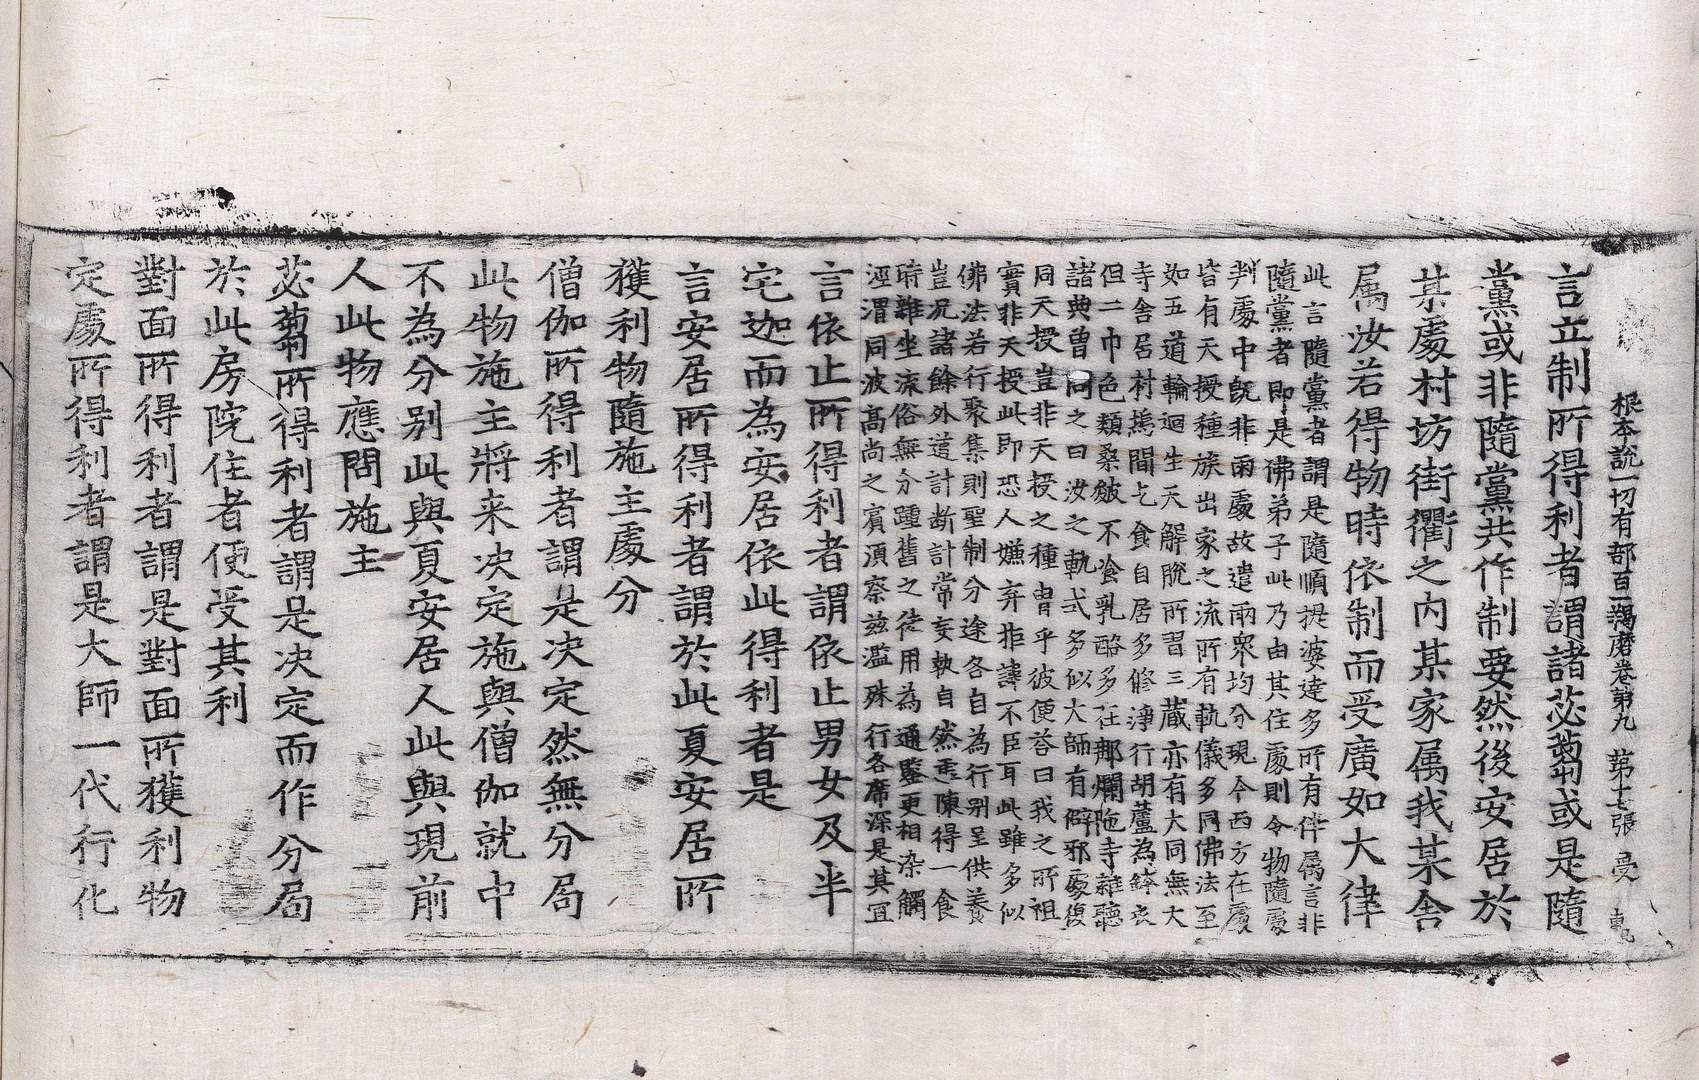 根本說一切有部百一羯磨卷第九 第十七張 受
言立制所得利者謂諸苾蒭或是隨
黨或非隨黨共作制要然後安居於
某處村坊街衢之內某家属我某舍
属汝若得物時依制而受廣如大律
此言隨黨者謂是隨順提婆達多所有伴属言非
隨黨者即是佛弟子此乃由其住處則令物隨處
判處中旣非兩處故遣兩衆均分現今西方在處
皆有天授種族出家之流所有軌儀多同佛法至
如五道輪迴生天解脫所習三藏亦有大同無大
寺舍居村塢間乞食自居多修淨行胡蘆為鉢衣
但二巾色類桑皴不飡乳酪多在那爛陁寺雜聽
諸典曾問之曰汝之軌式多似大師有僻邪處復
同天授豈非天授之種胄乎彼便荅曰我之所祖
實非天授此即恐人嫌弃拒諱不臣耳此雖多似
佛法若行聚集則聖制分途各自為行別呈供養
豈况諸餘外道計断計常妄執自然虛陳得一食
時雜坐流俗無分踵舊之徒用為通鑒更相染觸
涇渭同波高尚之賓湏察茲濫殊行各席深是其冝
言依止所得利者謂依止男女及半
宅迦而為安居依此得利者是
言安居所得利者謂於此夏安居所
獲利物隨施主處分
僧伽所得利者謂是決定然無分局
此物施主將来决定施與僧伽就中
不為分別此與夏安居人此與現前
人此物應問施主
苾蒭所得利者謂是决定而作分局
於此房院住者便受其利
對面所得利者謂是對面所獲利物
定處所得利者謂是大師一代行化